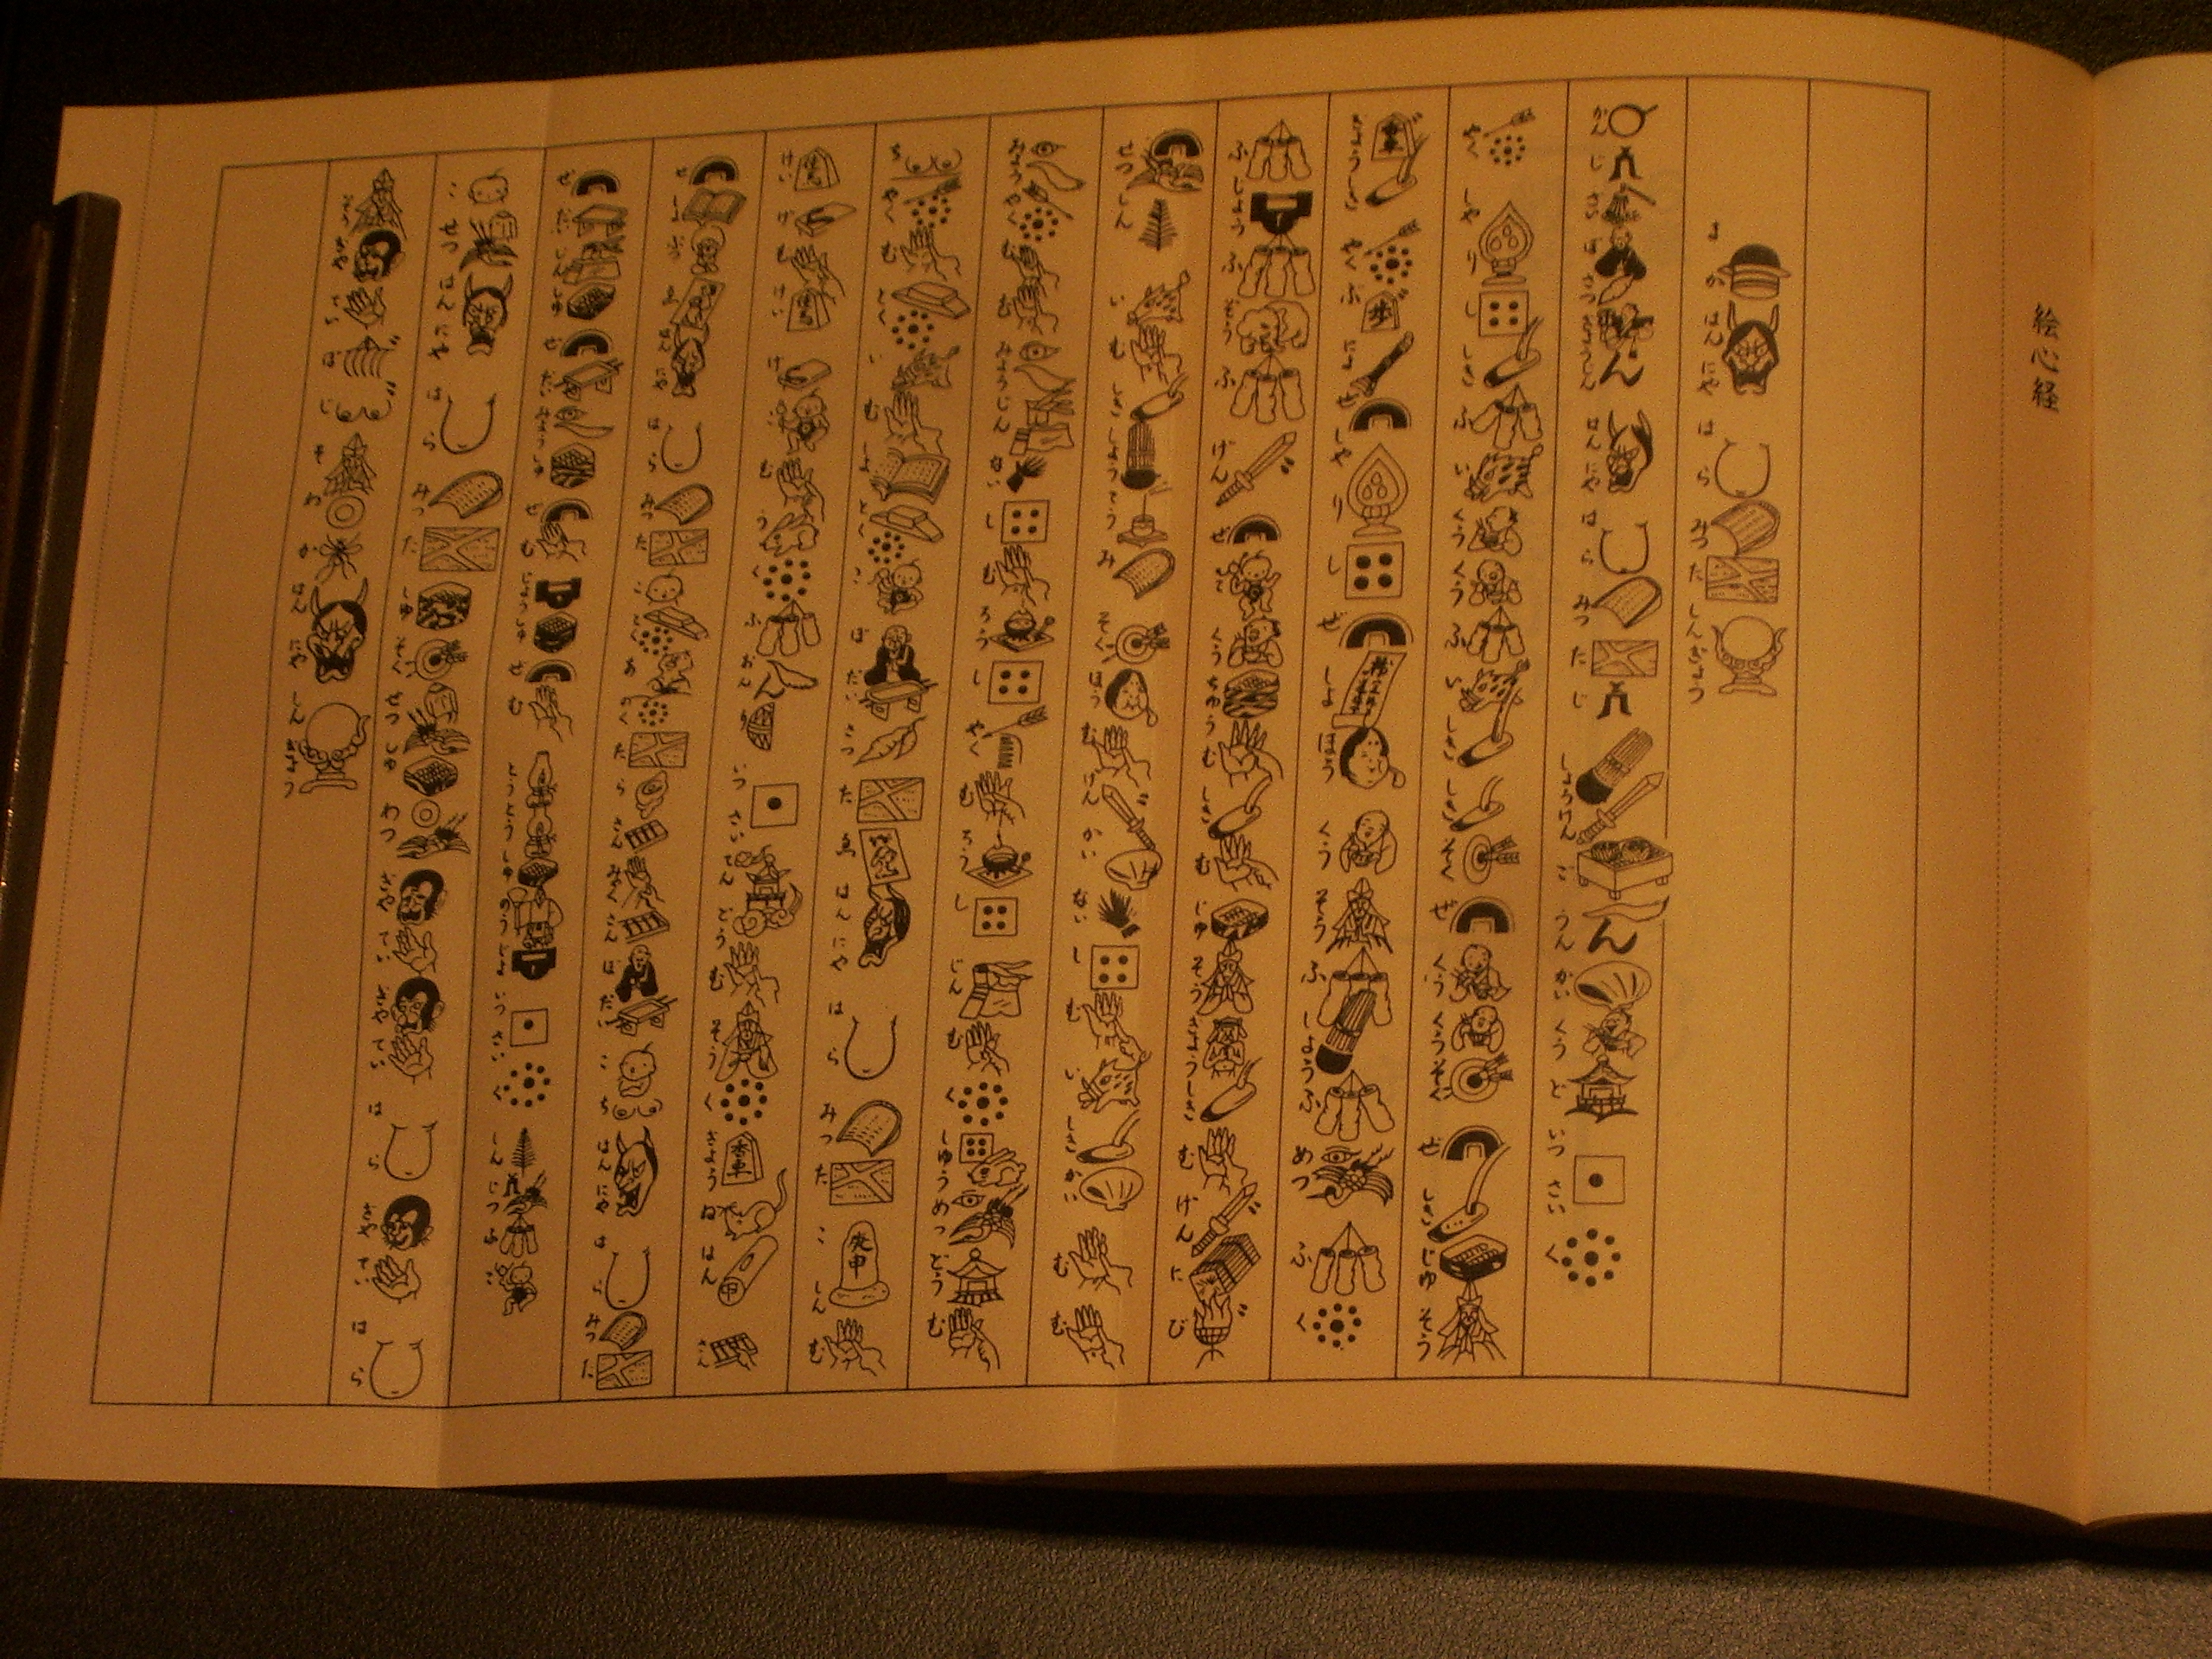 絵心経
まかはんにやはらみつたしんぎょう
かんじさいぼさつぎょうじんはんにやはらみつたじしょうけんごうんかいくうどいつさいく
やくしやりししきふいくうくうふいしきしきそくぜくうくうそくぜしきじゆそう
ぎょうしきやくぶによぜしやりしぜしよほうくうそうふしょうふめつふく
ふじょうふぞうふげんぜこくうちゆうむしきむじゆそうぎょうしきむげんにび
ぜつしんいむしきしょうこうみそくほうむげんかいないしむいしきかいむむ
みょうやくむむみょうじんないしむろうしやくむろうしじんむくしゆうめつどうむ
ちやくむとくいむしよとくこぼだいさつたゑはんにやはらみつたこしんむ
けいげむけいげこむうくふおんりいつさいてんどうむそうくぎょうねはんさ
ぜしよぶつゑはんにやはらみつたことくあのくたらさんみやくさんぼだいこちはんにやはらみつた
ぜだいじんしゆぜだいみょうしゆぜむじょうしゆぜむとうとうしゆのうじょいつさいくしんじつふこ
こせつはんにやはらみつたしゆそくせつしゆわつぎやていぎやていはらぎやていはら
そうぎやていぼじそわかはんにやしんぎょう